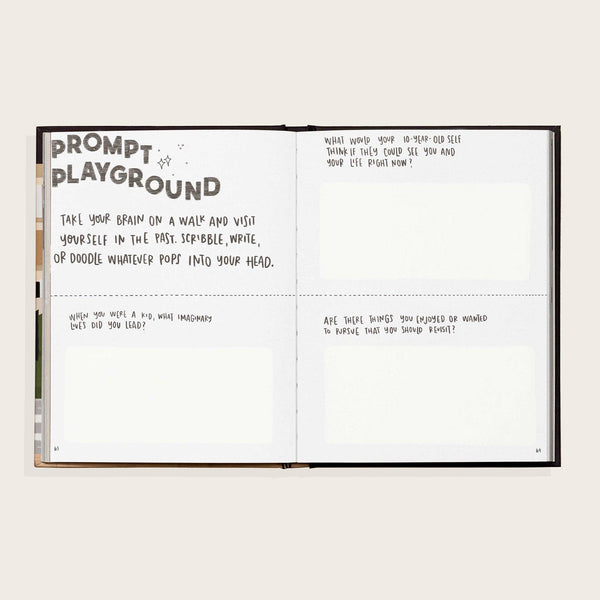 PROMPT
PLAYGROUND
TAKE YOUR BRAIN ON A WALK AND VISIT
YOURSELF IN THE PAST. SCRIBBLE, WRITE,
OR DOODLE WHATEVER POPS INTO YOUR HEAD.
WHEN YOU WERE A KID, WHAT IMAGINARY
LIVES DID YOU LEAD?
WHAT WOULD YOUR 10-YEAR-OLD SELF
THINK IF THEY COULD SEE YOU AND
YOUR LIFE RIGHT NOW?
ARE THERE THINGS YOU ENJOYED OR WANTED
TO PURSUE THAT YOU SHOULD REVISIT?